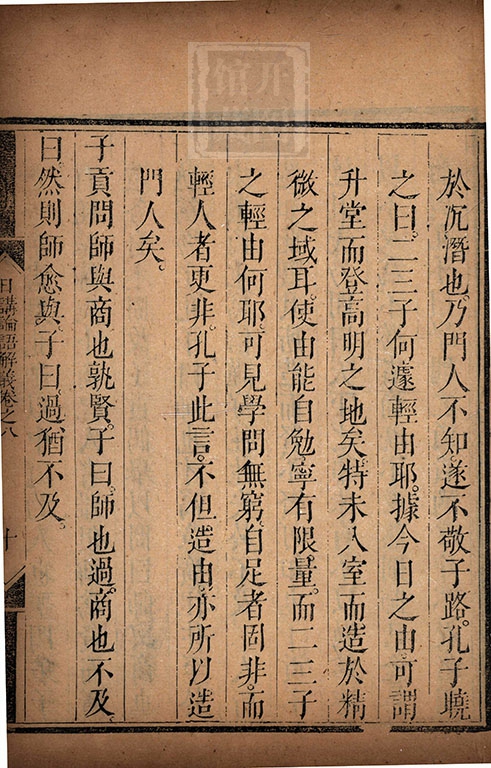 於沉潛也。乃門人不知遂不敬子路。孔子曉
之曰。二三子何遽輕由耶。據今日之由。可謂
升堂而登高明之地矣。特未入室而造於精
微之域耳。使由能自勉。寧有限量。而二三子
之輕由何耶。可見學問無窮。自足者固非。而
輕人者更非。孔子此言。不但造由。亦所以造
門人矣。
子貢問師與商也孰賢。子曰。師也過。商也不及。
曰然則師愈與。子曰過猶不及。
日講論語解義卷之八
十